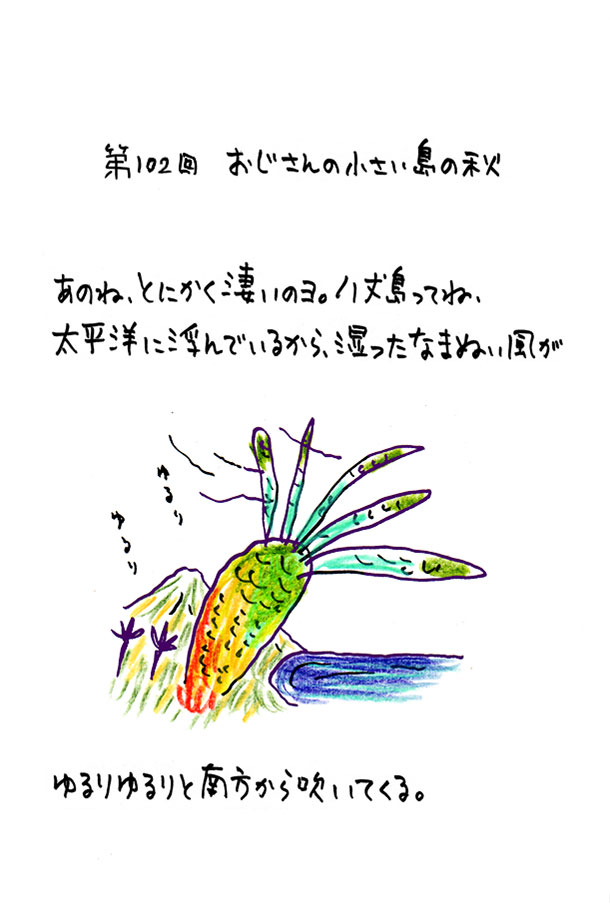 第102回 おじさんの小さい島の秋
あのね、とにかく凄いのヨ。八丈島ってね、
太平洋に浮んでいるから、湿ったなまぬるい風が
ゆるり
ゆるり
ゆるりゆるりと南方から吹いてくる。